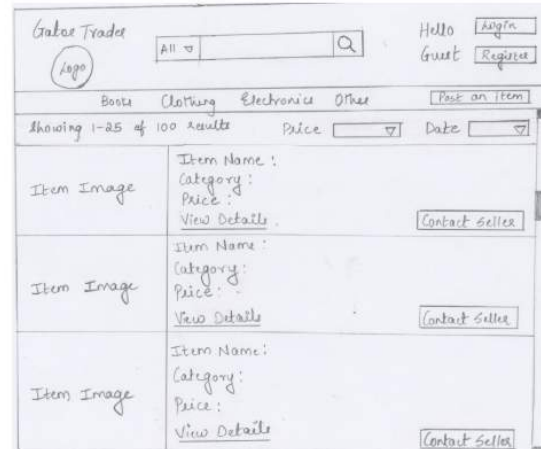 Gator Trader
Logo
All
Hello Guest
Login
Register
Books Clothing Electronics Other Post an item
Showing 1-25 of 100 results Price Date
Item Image
Item Name :
Category :
Price :
View Details
Contact Seller
Item Image
Item Name :
Category :
Price :
View Details
Contact Seller
Item Image
Item Name :
Category :
Price :
View Details
Contact Seller